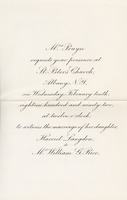 Mrs. Pruyn
requests your presence at
St. Peter's Church,
Albany, N.Y.
on Wednesday, February tenth,
eighteen hundred and ninety-two,
at twelve o'clock,
to witness the marriage of her daughter,
Harriet Langdon,
to
Mr. William G. Rice.